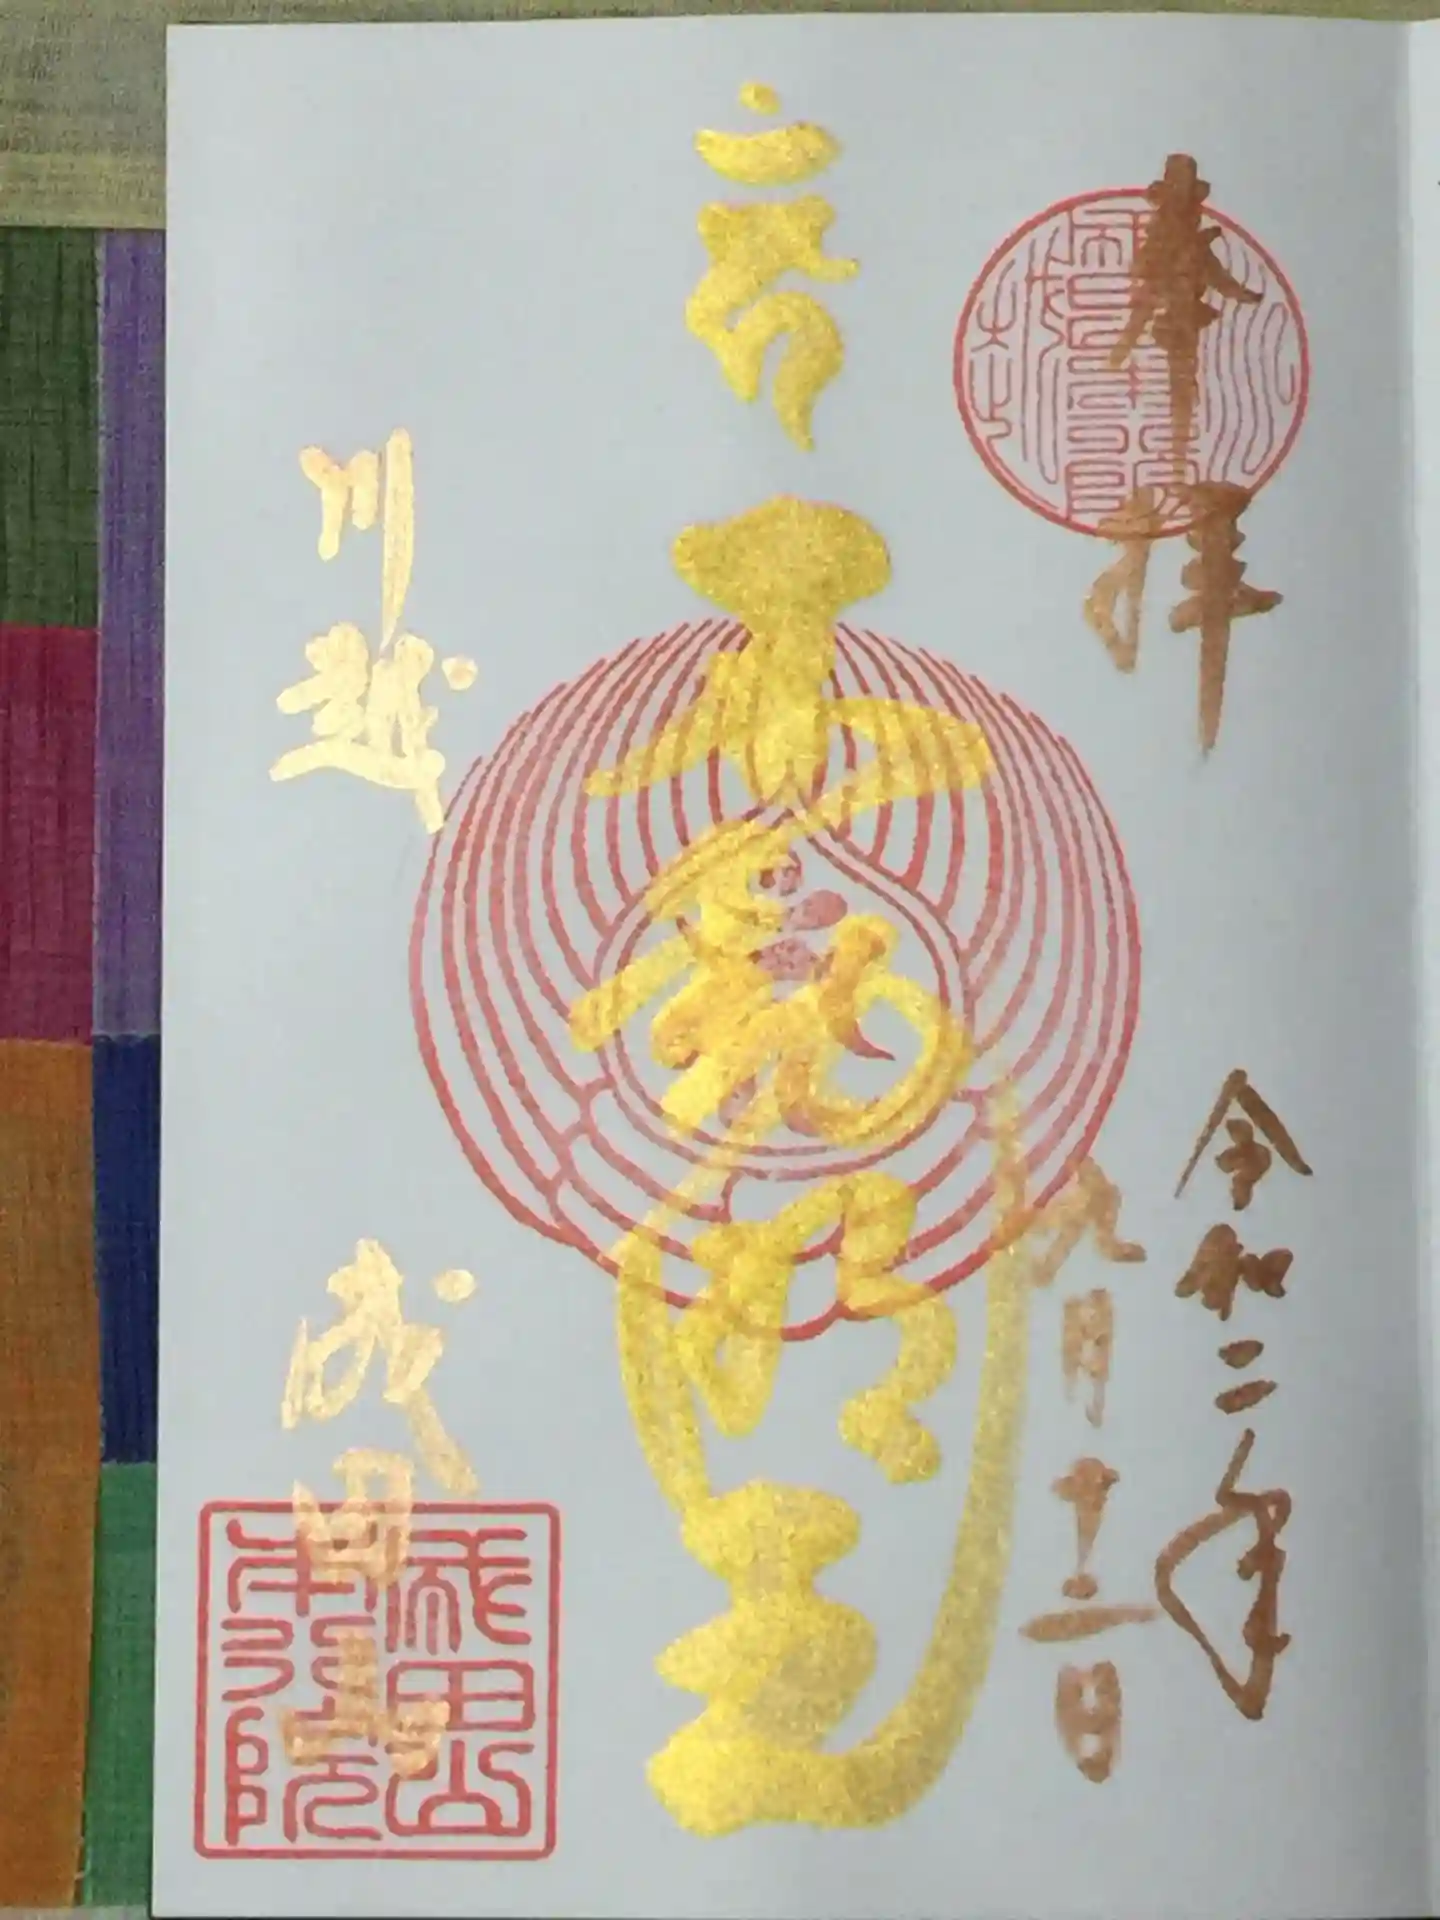 奉拝
令和二年
九月十二日
不動明王
川越
成田山
成田山
本行院